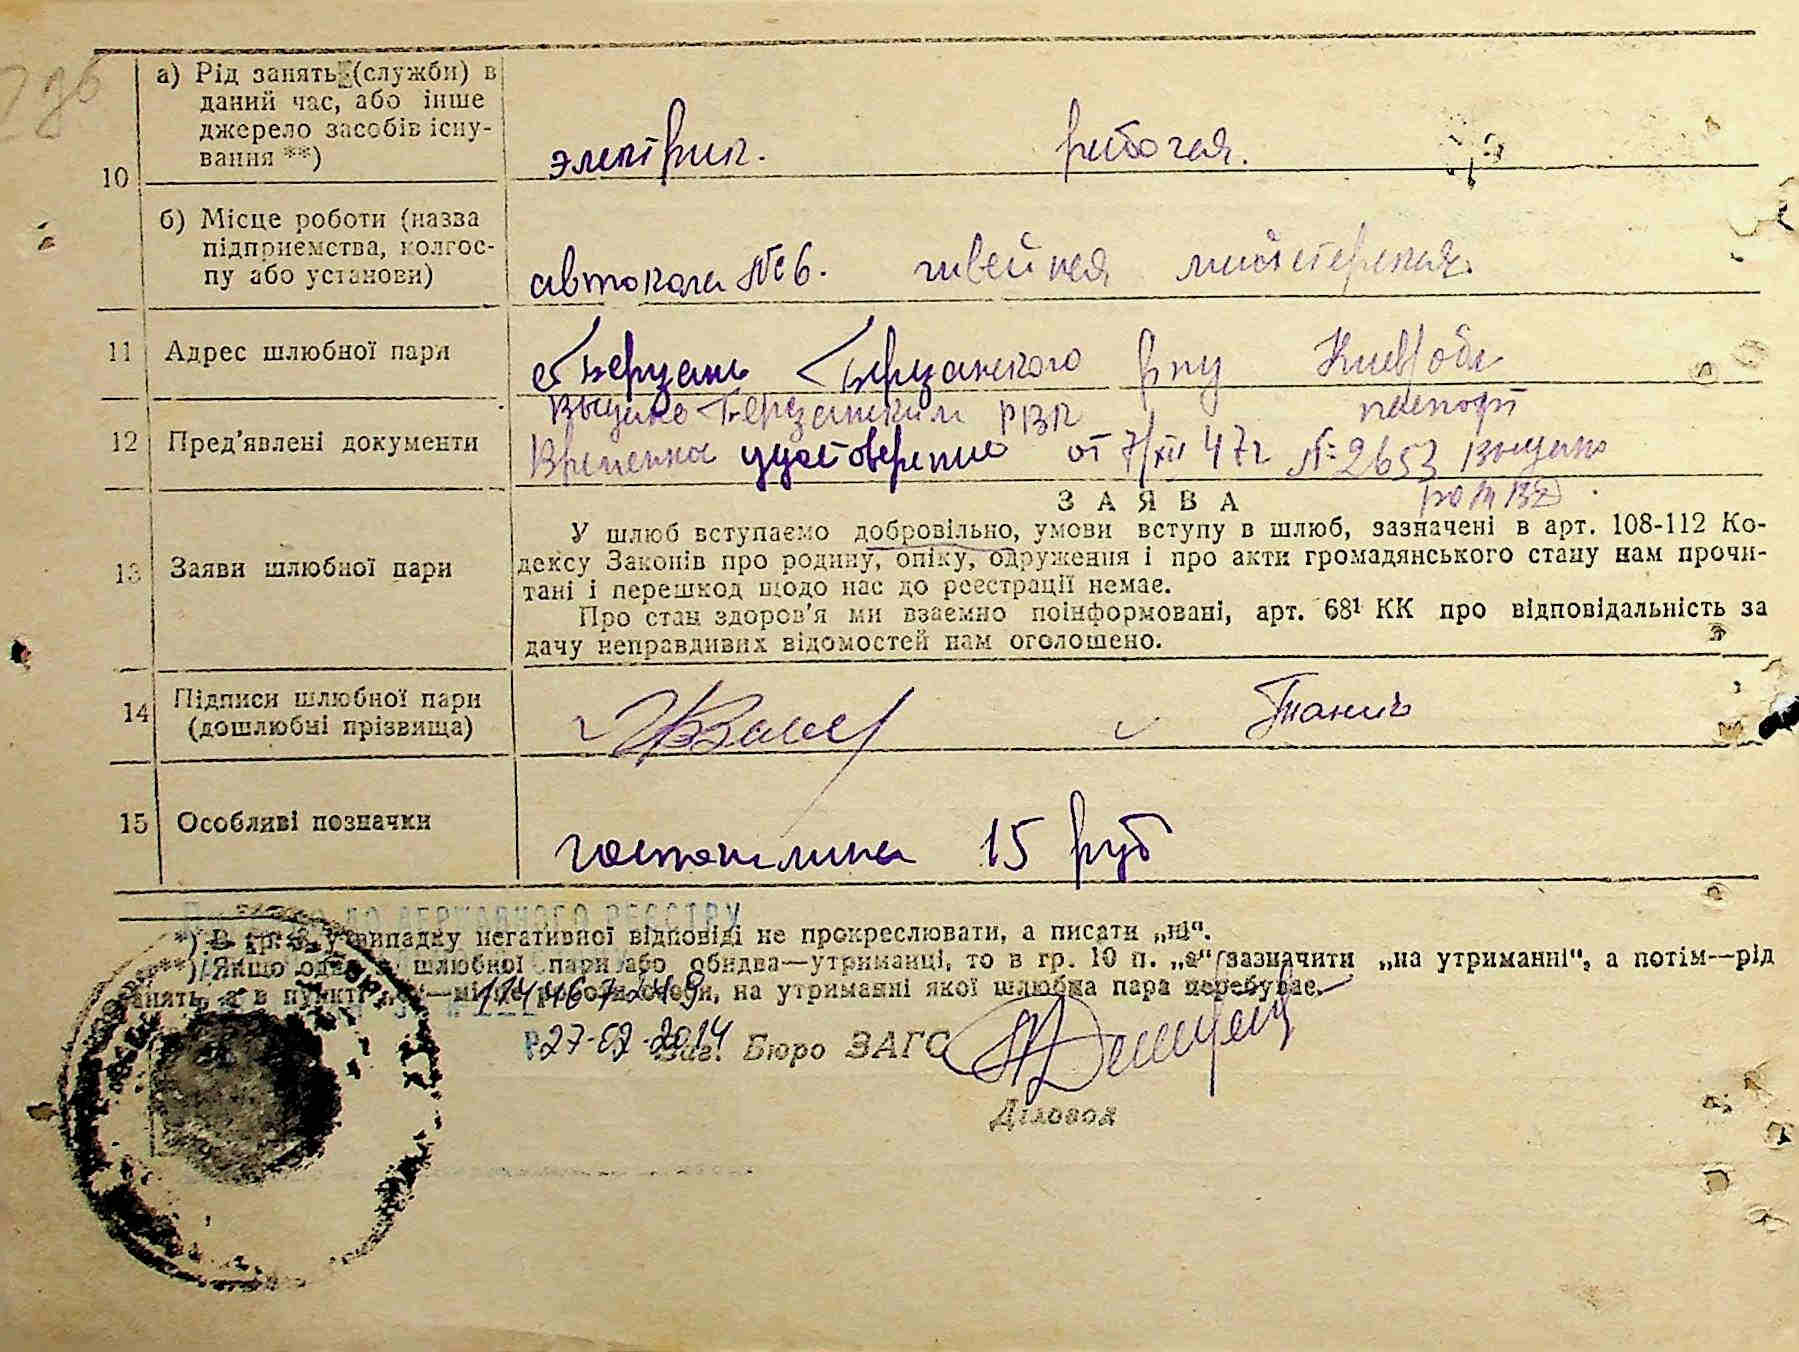 10
а) Рід занять (служби) в
даний час, або інше
джерело засобів існу-
вання **)
электрик. рабочая.
б) Місце роботи (назва
підприємства, колгос-
пу або установи)
автокола № 6. швейная мастерская.
11 Адрес шлюбної пари
Березанского р-ну Киев обл
12 Пред'явлені документи
Выдано Березанским РВК паспорт
Времянка удостоверение от 7/XII 47г № 2653 выдано
13 Заяви шлюбної пари
ЗАЯВА
У шлюб вступаємо добровільно, умови вступу в шлюб, зазначені в арт. 108-112 Ко-
дексу Законів про родину, опіку, одруження і про акти громадянського стану нам прочи-
тані і перешкод щодо нас до реєстрації немає.
Про стан здоров'я ми взаємно поінформовані, арт. 68¹ КК про відповідальність за
дачу неправдивих відомостей нам оголошено.
14 Підписи шлюбної пари
(дошлюбні прізвища)
15 Особляві позначки
госпошлина 15 руб
ДО ДЕРЖАВНОГО РЕЄСТРУ
*) В гр. 8, у випадку негативної відповіді не прокреслювати, а писати „ні“.
**) Якщо один з шлюбної пари або обидва—утриманці, то в гр. 10 п. „а“ зазначити „на утриманні“, а потім—рід
занять, а в пункті „б“—місце роботи особи, на утриманні якої шлюбна пара перебуває.
27-02-2014
Заг. Бюро ЗАГС
Діловод